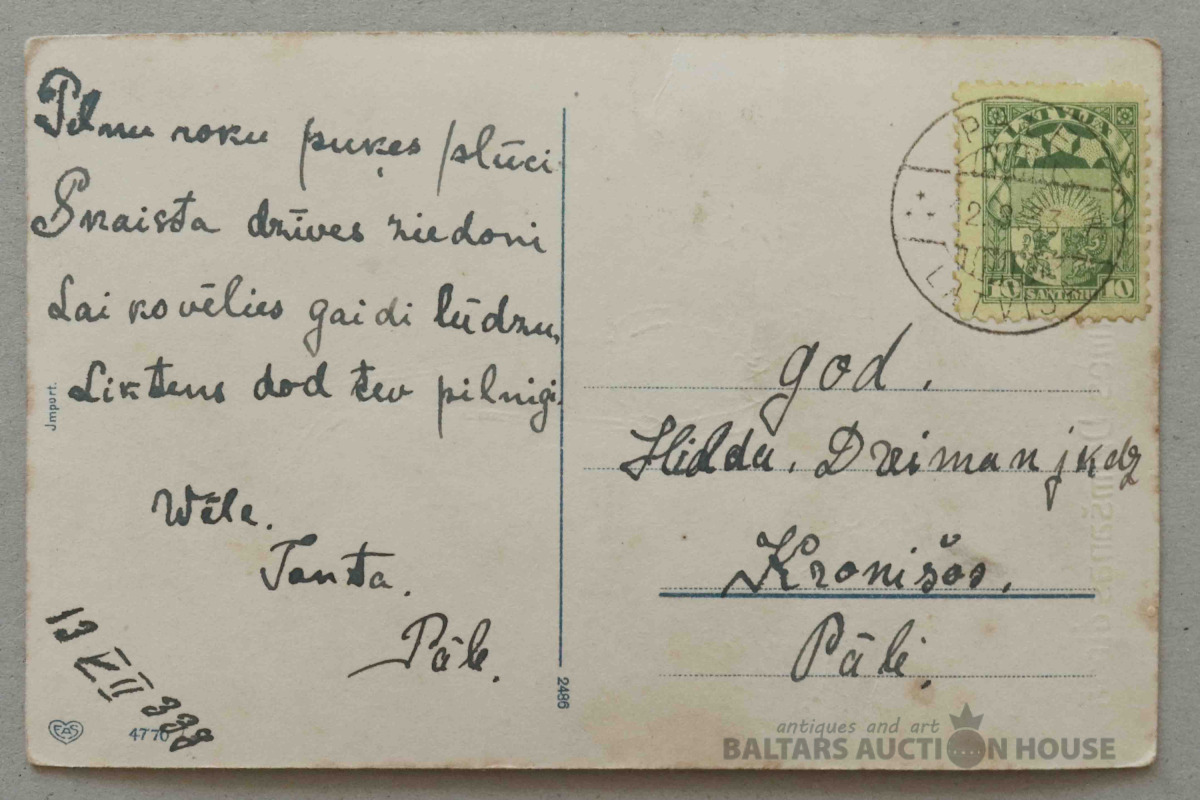 Pilnu roku puķes plūci
Skaista dzīves ziedoni
Lai ko vēlies gaidi lūdzu,
Liktens dod tev pilnigi.
Wēla.
Tanta.
Pāle.
13 VII 338
Jmport.
EAS
4770
2486
LATVIJA
10 SANTIMU 10
LATVIJA
god.
Hilda. Dreiman jkdz
Kronišos.
Pālē,
antiques and art
BALTARS AUCTION HOUSE